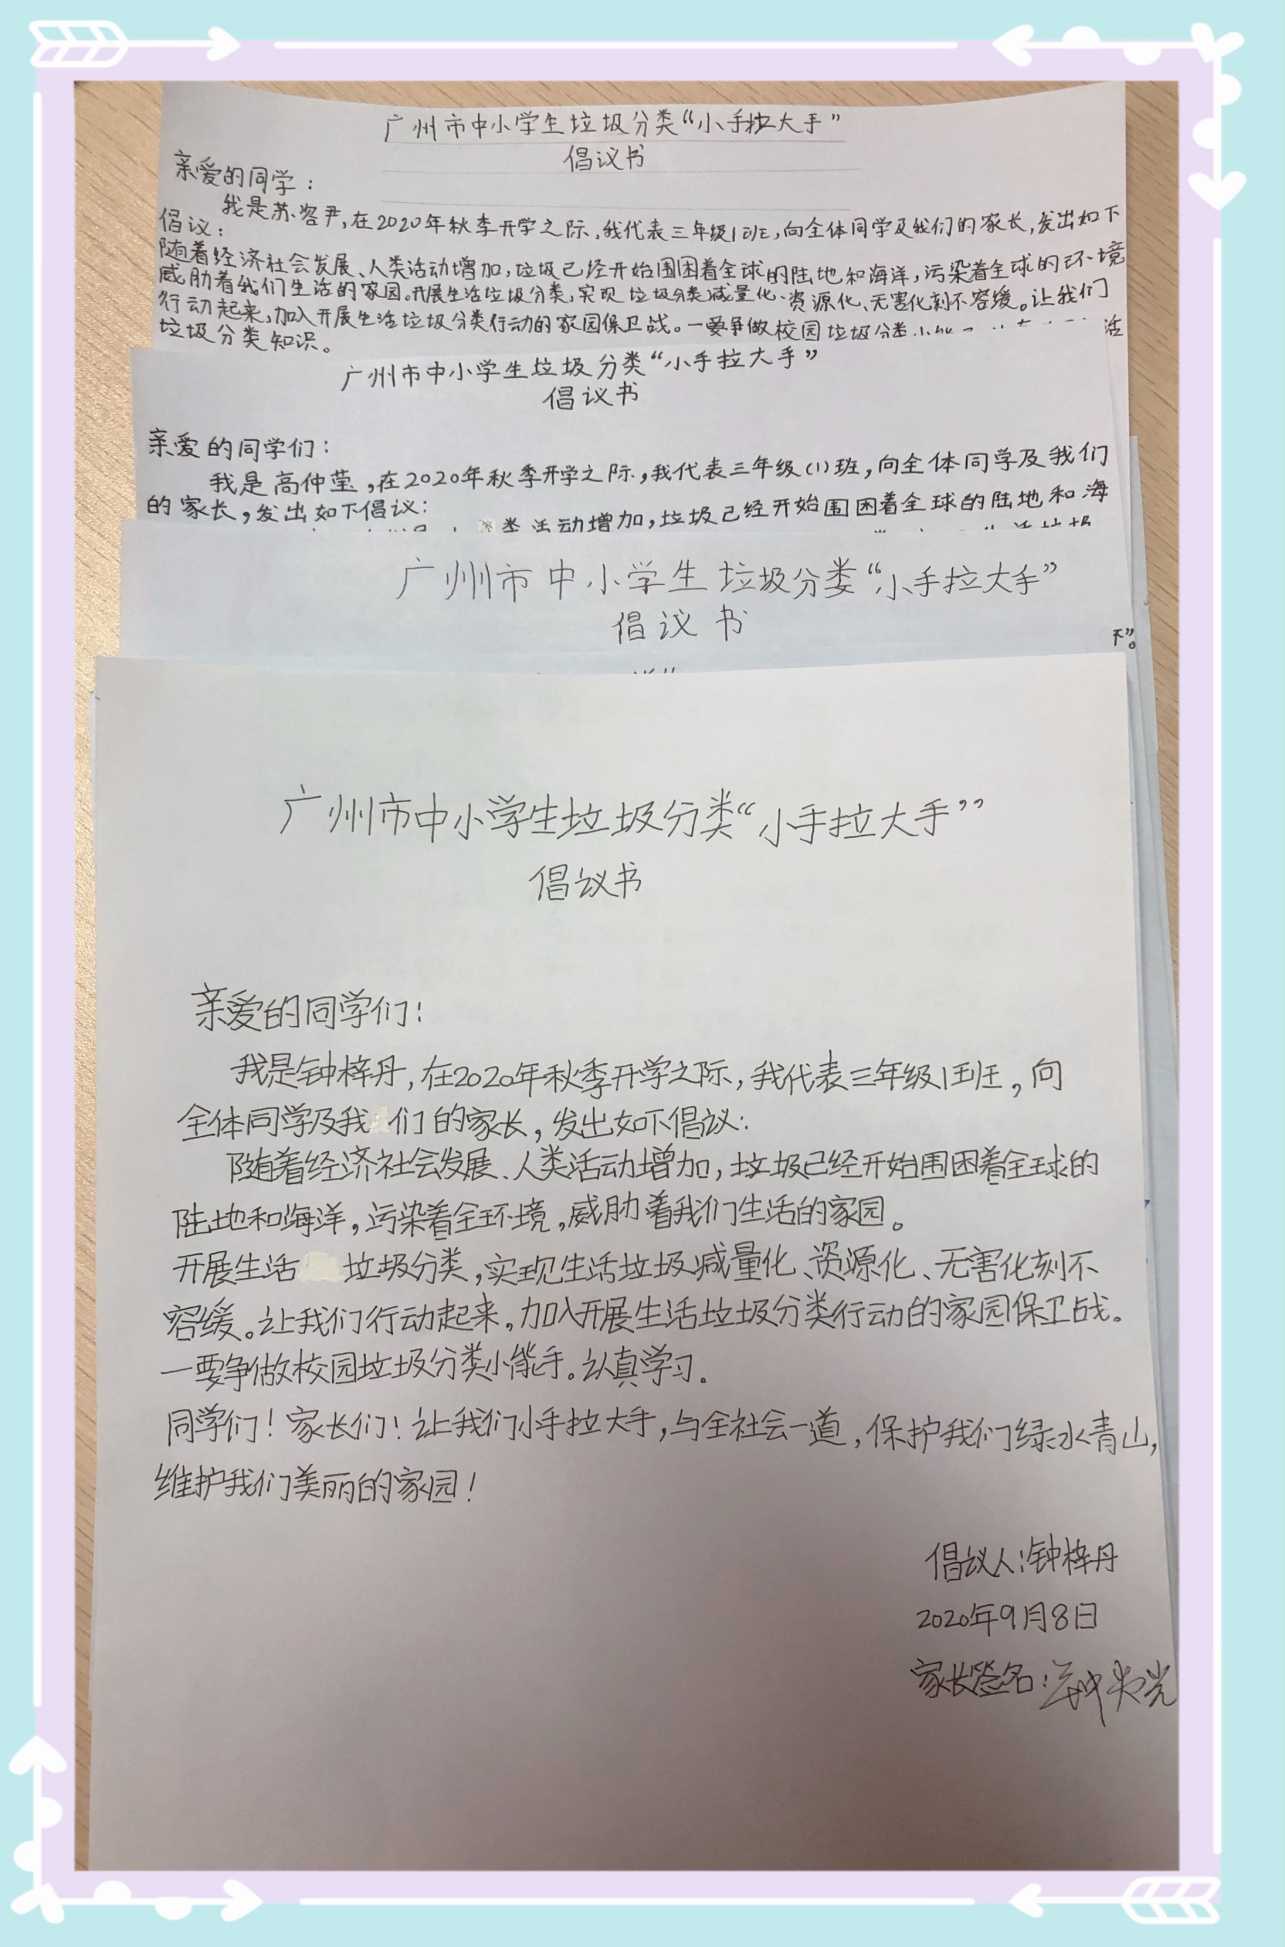 广州市中小学生垃圾分类“小手拉大手”
倡议书
亲爱的同学：
我是苏容尹，在2020年秋季开学之际，我代表三年级1班，向全体同学及我们的家长，发出如下
倡议：
随着经济社会发展、人类活动增加，垃圾已经开始围困着全球的陆地和海洋，污染着全球的环境
威胁着我们生活的家园。开展生活垃圾分类，实现垃圾分类减量化、资源化、无害化刻不容缓。让我们
行动起来，加入开展生活垃圾分类行动的家园保卫战。一要争做校园垃圾分类小能
活
垃圾分类知识。
广州市中小学生垃圾分类“小手拉大手”
倡议书
亲爱的同学们：
我是高仲莹，在2020年秋季开学之际，我代表三年级（1）班，向全体同学及我们
的家长，发出如下倡议：
类活动增加，垃圾已经开始围困着全球的陆地和海
广州市中小学生垃圾分类“小手拉大手”
倡议书
下”。
广州市中小学生垃圾分类“小手拉大手”
倡议书
亲爱的同学们！
我是钟梓丹，在2020年秋季开学之际，我代表三年级1班，向
全体同学及我们的家长，发出如下倡议：
随着经济社会发展、人类活动增加，垃圾已经开始围困着全球的
陆地和海洋，污染着全环境，威胁着我们生活的家园。
开展生活垃圾分类，实现生活垃圾减量化、资源化、无害化刻不
容缓。让我们行动起来，加入开展生活垃圾分类行动的家园保卫战。
一要争做校园垃圾分类小能手。认真学习．
同学们！家长们！让我们小手拉大手，与全社会一道，保护我们绿水青山，
维护我们美丽的家园！
倡议人：钟梓丹
2020年9月8日
家长签名：钟